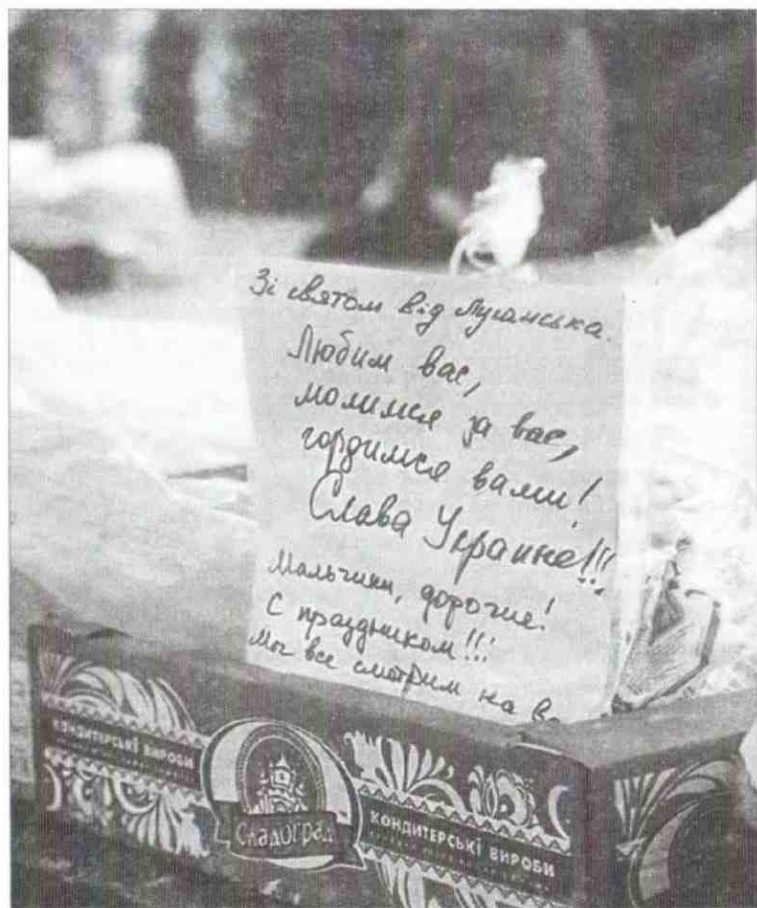 Зі святом від Луганська.
Любим вас,
молимся за вас,
гордимся вами!
Слава Украине!!!
Мальчики, дорогие!
С праздником!!!
Мы все смотрим на
КОНДИТЕРСЬКІ ВИРОБИ
Сладоград
КОНДИТЕРСЬКІ ВИРОБИ